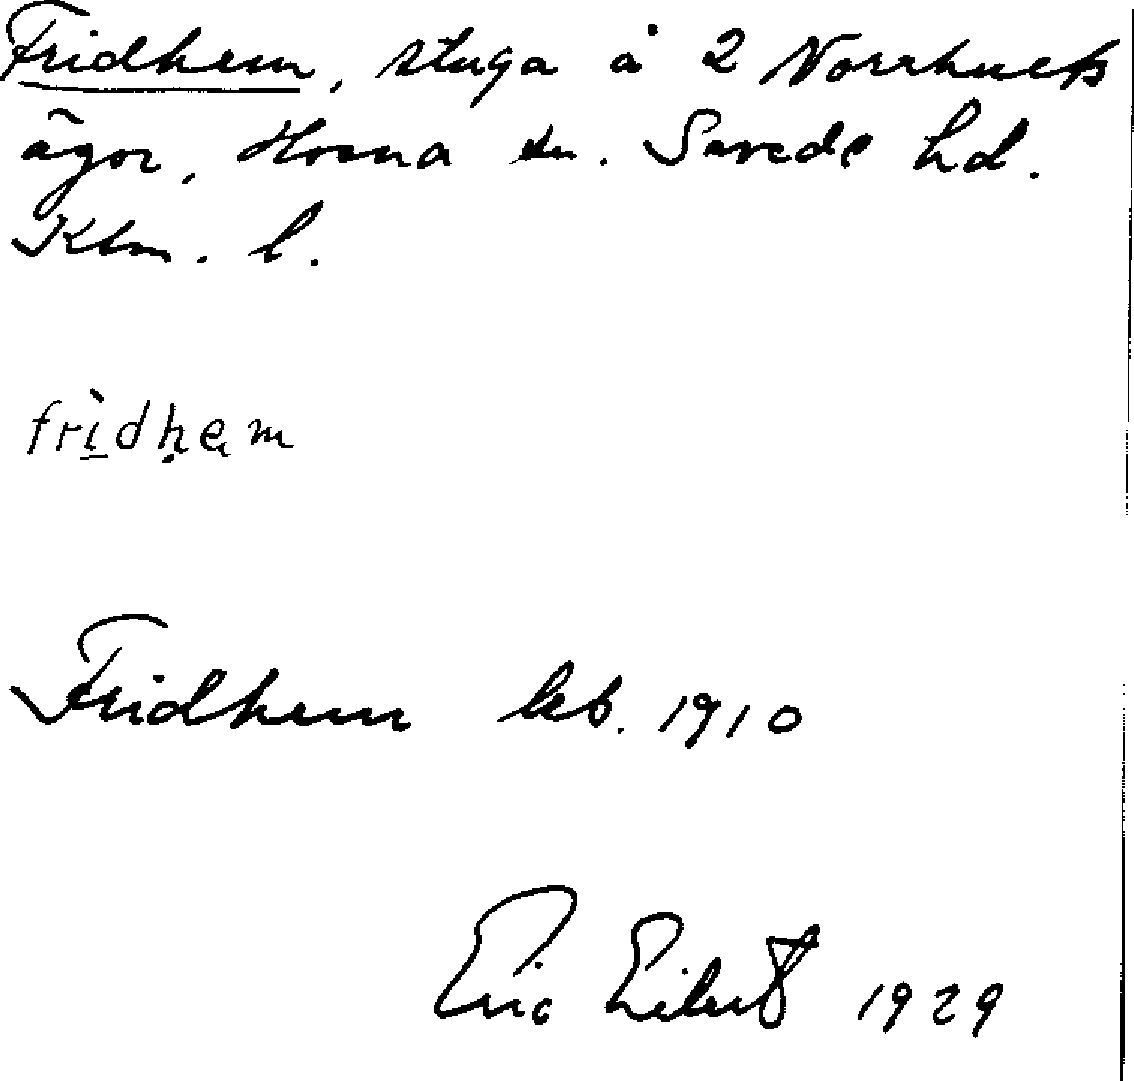 Fridhem, stuga å 2 Norrhults
ägor, sn. Sevede hd.
Klm. l.
fridhem
Fridhem leb. 1910
Eric Eilert 1929